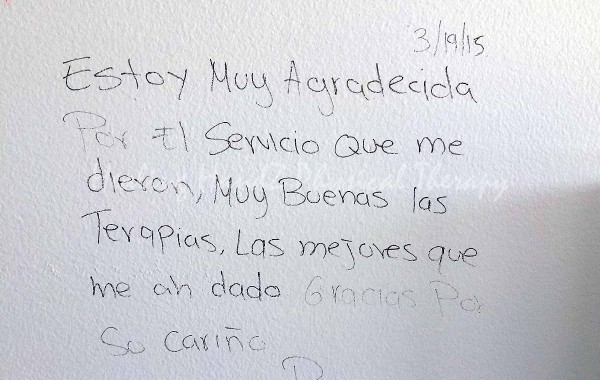 3/19/15
Estoy Muy Agradecida
Por El Servicio Que me
dieron, Muy Buenas las
Terapias, Las mejores que
me ah dado Gracias Por
Su cariño